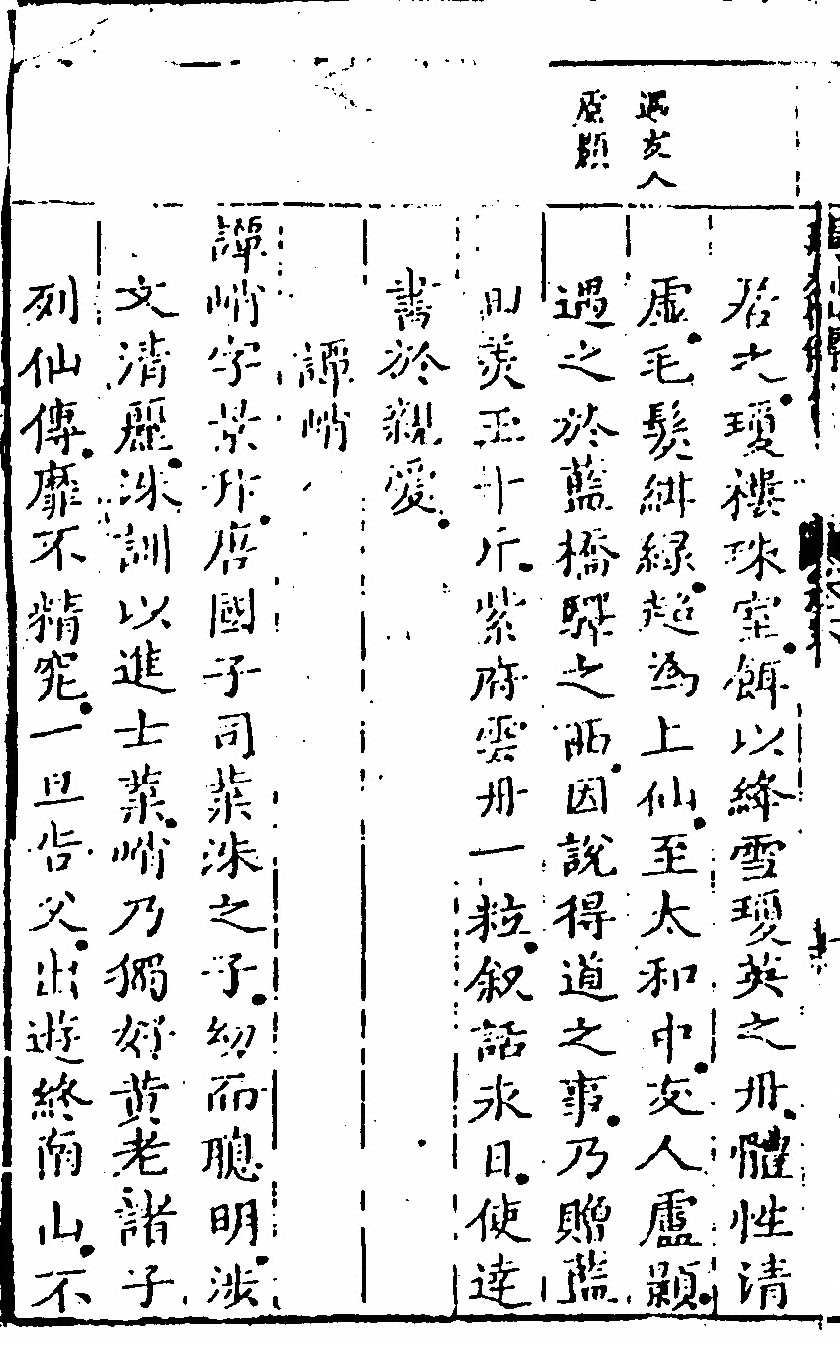 遇友人
盧顥
居之。瓊樓珠室。餌以絳雪瓊英之丹。體性清
虛。毛髮紺綠。超為上仙。至太和中。友人盧顥。
遇之於藍橋驛之西。因說得道之事。乃贈藍
田美玉十斤。紫府雲丹一粒。叙話永日。使達
書於親愛。
譚峭
譚峭字景升。唐國子司業洙之子。幼而聰明。涉
文清麗。洙訓以進士業。峭乃獨好黃老諸子
列仙傳。靡不精究。一旦告父。出遊終南山。不